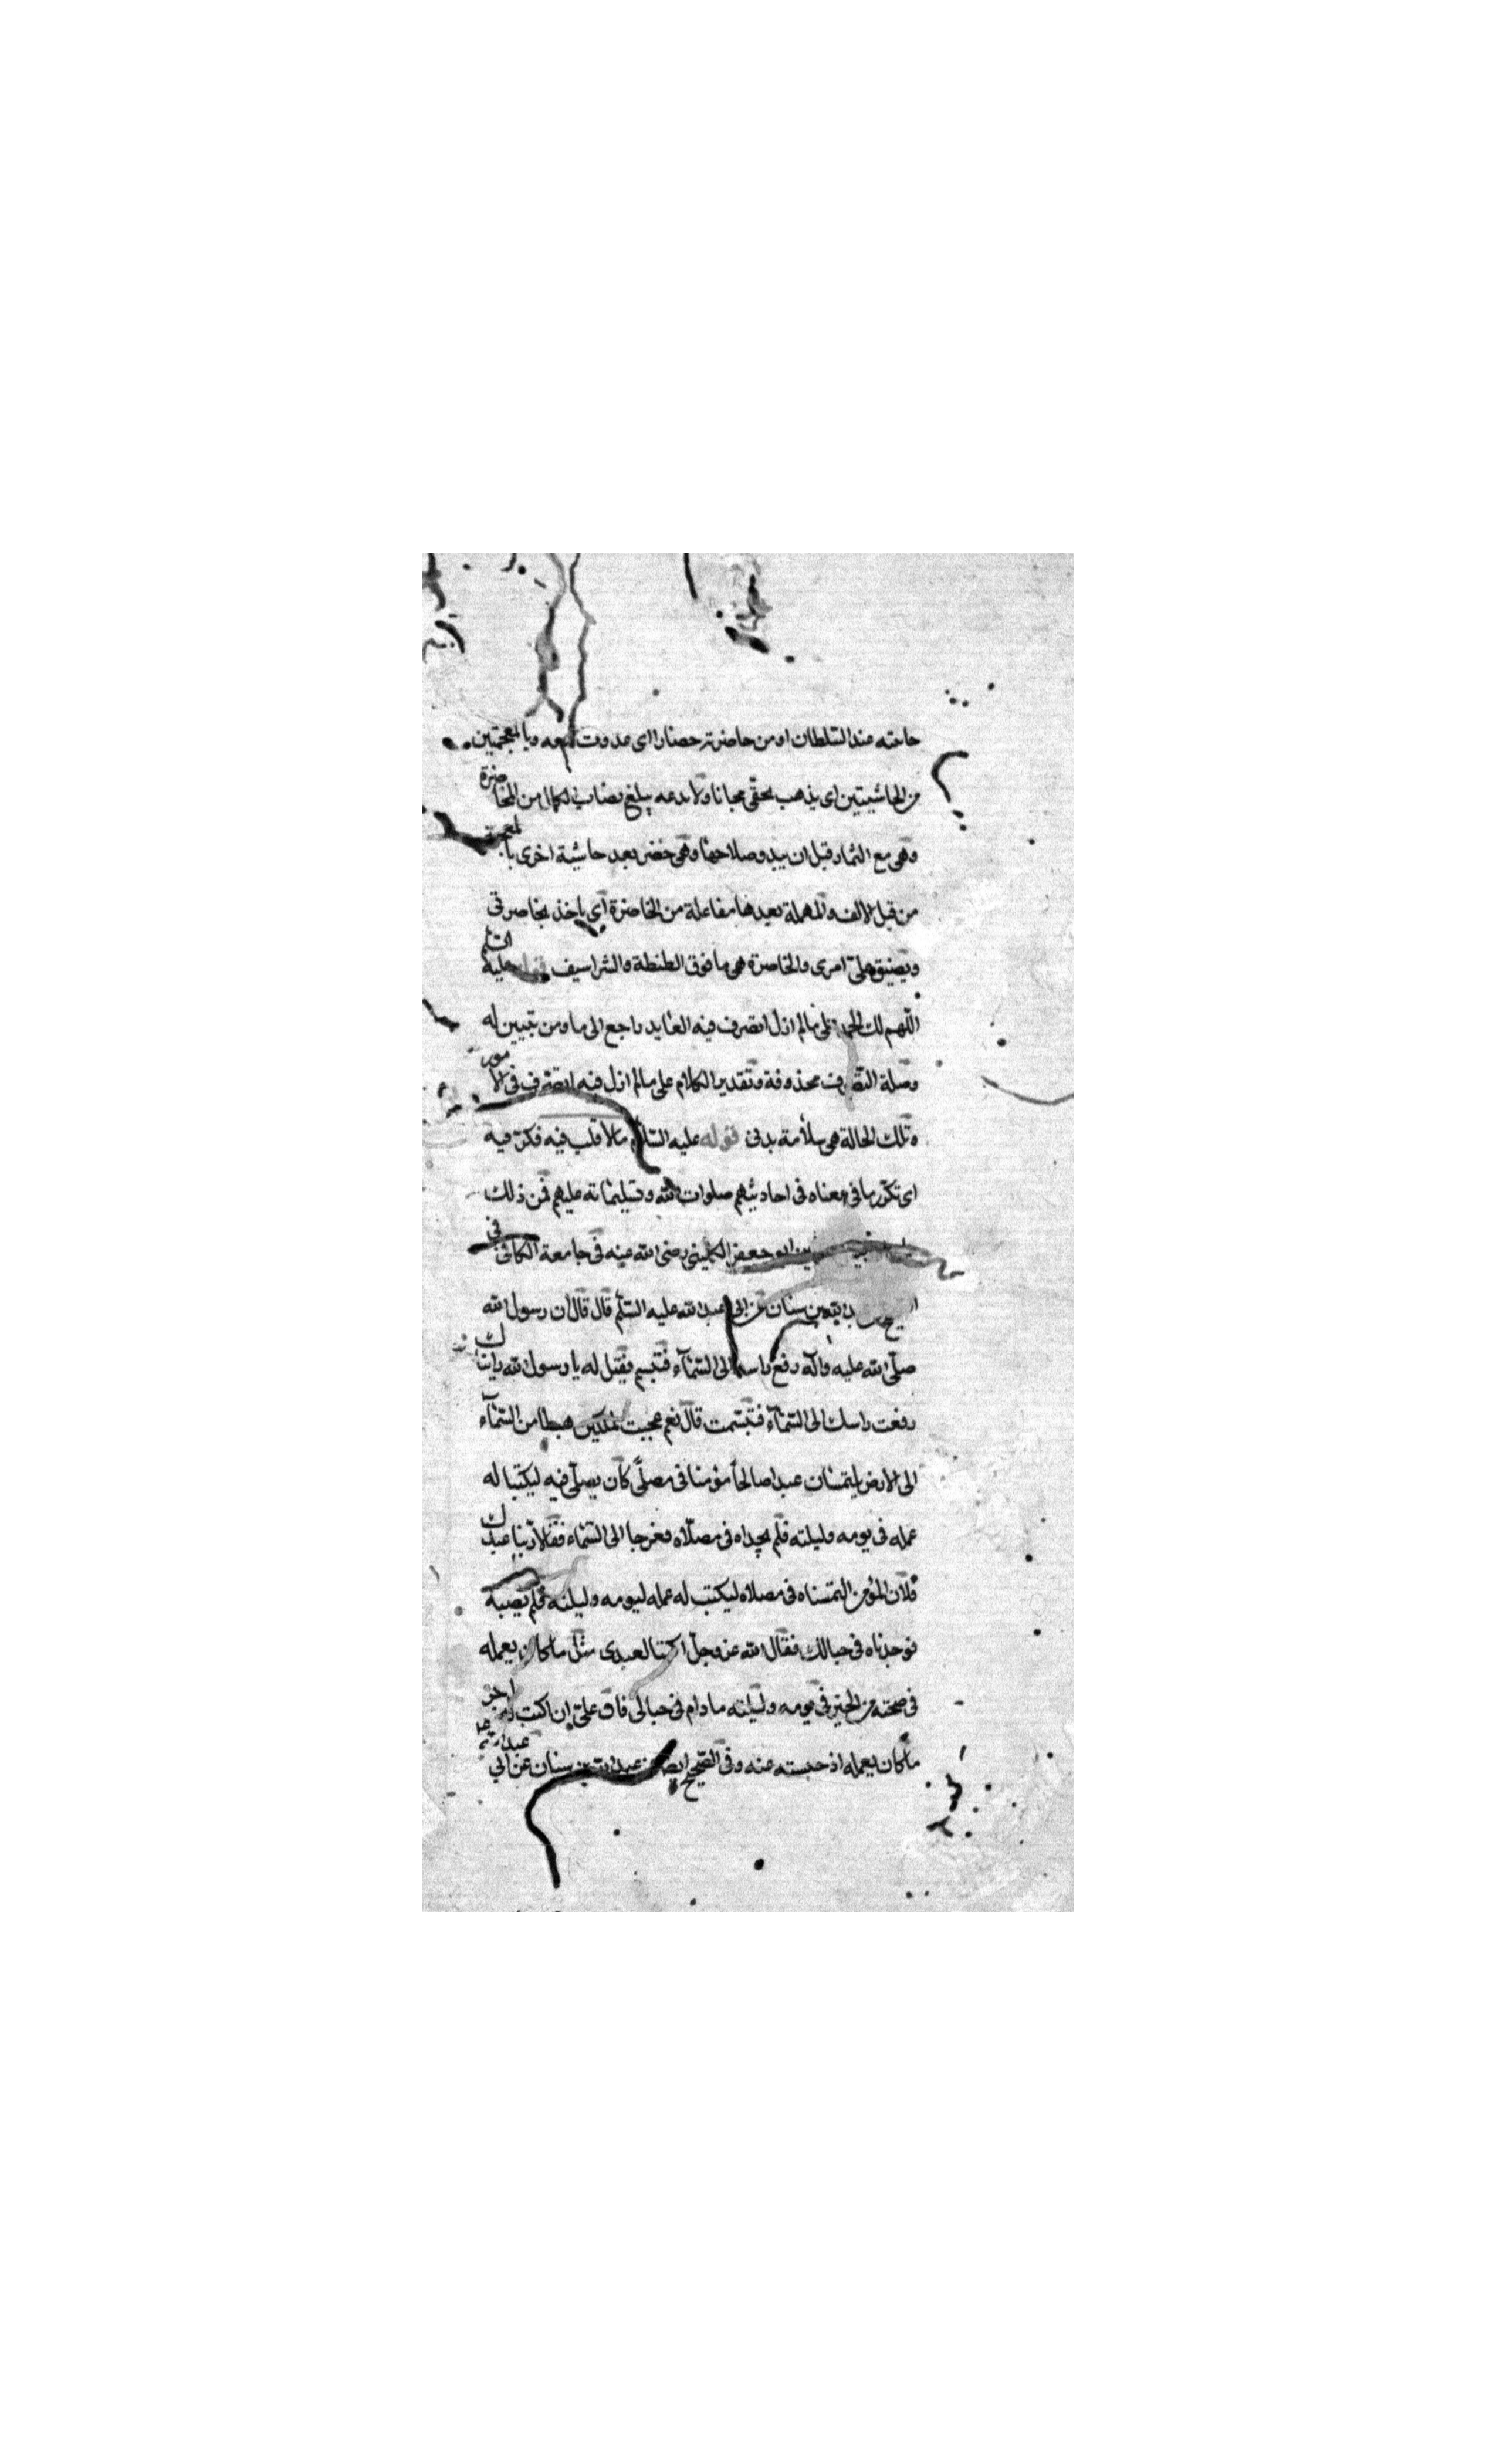 حاجته عند السلطان او من حاضرته حضارا اى عدوت معه وبالمعجمتين
من الحاشيتين اى يذهب بحقى مجانا ولا يدعه يبلغ نصاب الكمال من المخاضرة
وهى بيع الثمار قبل ان يبدو صلاحها وهى خضر بعد حاشية اخرى بالمعجمة
من قبل الالف والمهملة بعدها مفاعلة من الخاصرة اى ياخذ بخاصرتى
ويضيق على امرى والخاصرة هى ما فوق الطفطفة والشراسيف قوله عليه السلم
اللهم لك الحمد على ما لم ازل اتصرف فيه العايد راجع الى ما ومن تبيين له
وصلة التصرف محذوفة وتقدير الكلام على ما لم ازل فيه اتصرف فى الامور
وتلك الحالة هى سلامة بدنى قوله عليه السلم ما لا قلب فيه فكر فيه
اى تكرر ما فى معناه فى احاديثهم صلوات الله وتسليماته عليهم فمن ذلك
ابو جعفر الكلينى رضى الله عنه فى جامعة الكافى فى
عبد الله بن سنان عن ابى عبد الله عليه السلم قال قال ان رسول الله
صلى الله عليه وآله رفع راسه الى السمآء فتبسم فقيل له يا رسول الله رايناك
رفعت راسك الى السمآء فتبسمت قال نعم عجبت لملكين هبطا من السمآء
الى الارض يلتمسان عبدا صالحا مؤمنا فى مصلى كان يصلى فيه ليكتبا له
عمله فى يومه وليلته فلم يجداه فى مصلاه فعرجا الى السماء فقالا ربنا عبدك
فلان المؤمن التمسناه فى مصلاه ليكتب له عمله ليومه وليلته فلم نصبه
فوجدناه فى حبالك فقال الله عز وجل اكتبا لعبدى مثل ما كان يعمله
فى صحته من الخير فى يومه وليلته ما دام فى حبالى فان على ان اكتب له اجر
ما كان يعمله اذ حبسته عنه وفى الصحيح ايضا عن عبد الله بن سنان عن ابي عبد الله